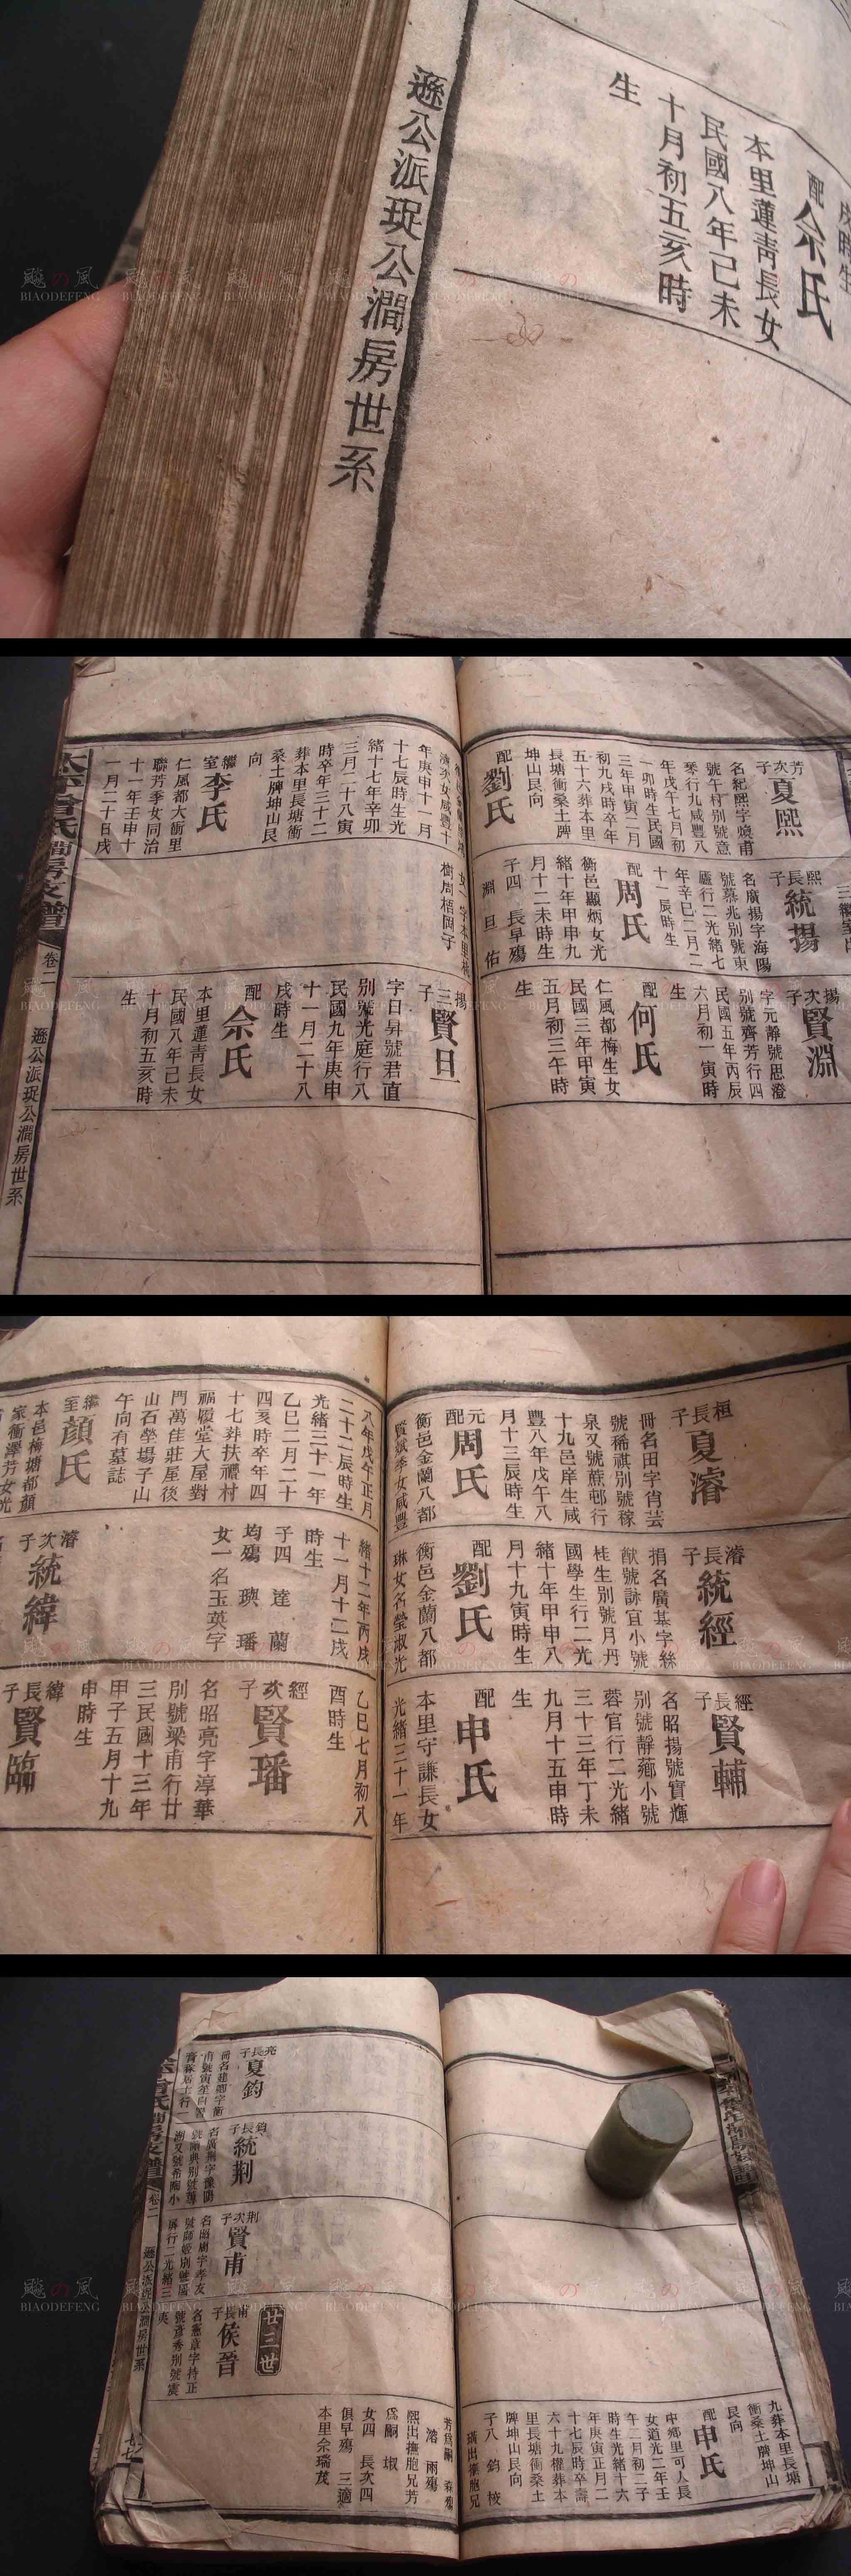 配佘氏
本里蓮靑長女
民國八年己未
十月初五亥時
生
遜公派珽公澗房世系
芳次子夏熙
名紀熙字燒甫
號午村別號意
琴行九咸豐八
年戊午七月初
一卯時生民國
三年甲寅二月
初九戌時卒年
五十六葬本里
長塘衝桑土牌
坤山艮向
配劉氏
年庚申十一月
十七辰時生光
緒十七年辛卯
三月二十八寅
時卒年三十二
葬本里長塘衝
桑土牌坤山艮
向
繼室李氏
仁風都大衝里
聯芳季女同治
十一年壬申十
一月二十日戌
熙長子統揚
名廣揚字海陽
號慕兆別號東
廬行二光緒七
年辛巳二月二
十一辰時生
配周氏
衡邑顯炳女光
緒十年甲申九
月十二未時生
子四 長早殤
淵 旦 佑
樹周梧岡子
揚次子賢淵
字元靜號思澄
別號齊芳行四
民國五年丙辰
六月初一寅時
生
配何氏
仁風都梅生女
民國三年甲寅
五月初三午時
生
揚三子賢旦
字日昇號君直
別號光庭行八
民國九年庚申
十一月二十八
戌時生
配佘氏
本里蓮靑長女
民國八年己未
十月初五亥時
生
卷二
遜公派珽公澗房世系
桓長子夏濬
冊名田字肖芸
號稀祺別號稼
泉又號蔗邨行
十九邑庠生咸
豐八年戊午八
月十三辰時生
元配周氏
衡邑金蘭八都
賢斌季女咸豐
八年戊午正月
二十二辰時生
光緒三十一年
乙巳二月二十
四亥時卒年四
十七葬扶禮村
福履堂大屋對
門萬佳莊屋後
山石塋場子山
午向有墓誌
繼室顏氏
本邑梅塘都顏
家衝澤芳女光
濬長子統經
捐名廣基字絲
猷號詠宜小號
桂生別號月丹
國學生行二光
緒十年甲申八
月十九寅時生
配劉氏
衡邑金蘭八都
琳女名瑩淑光
緒十二年丙戌
十一月十二戌
時生
子四 達 蘭
均殤 璵 璠
女一名玉英字
濬次子統緯
經長子賢輔
名昭揚號寶輝
別號靜薌小號
蓉官行二光緒
三十三年丁未
九月十五申時
生
配申氏
本里守謙長女
光緒三十一年
乙巳七月初八
酉時生
經次子賢璠
名昭亮字淳華
別號梁甫行廿
三民國十三年
甲子五月十九
申時生
緯長子賢臨
亮長子夏鈞
鈞長子統荆
荆次子賢甫
廿三世
甫長子侯晉
名憲章字持正
號彥秀別號震
九葬本里長塘
衝桑土牌坤山
艮向
配申氏
中鄉里可人長
女道光二年壬
午二月初二子
時生光緒十六
年庚寅正月二
十七辰時卒壽
六十九權葬本
里長塘衝桑土
牌坤山艮向
子八 鈞 棱
濬 雨殤
熙出撫胞兄芳
爲嗣 椒
女四 長次四
俱早殤 三適
本里佘瑞茂
飈の風
BIAODEFENG